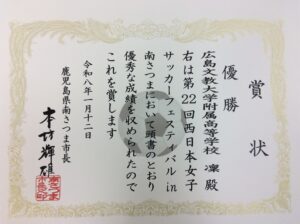 賞状
優勝
広島文教大学附属高等学校 凜 殿
右は第22回西日本女子
サッカーフェスティバルin
南さつまにおいて頭書のとおり
優秀な成績を収められたので
これを賞します
令和八年一月十二日
鹿児島県南さつま市長
本坊輝雄